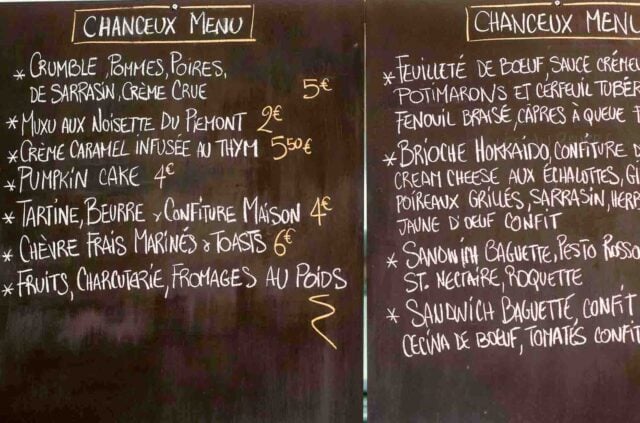 CHANCEUX MENU
* CRUMBLE, POMMES, POIRES,
DE SARRASIN, CRÈME CRUE 5€
* MUXU AUX NOISETTE DU PIEMONT 2€
* CRÈME CARAMEL INFUSÉE AU THYM 5,50€
* PUMPKIN CAKE 4€
* TARTINE, BEURRE & CONFITURE MAISON 4€
* CHÈVRE FRAIS MARINÉS & TOASTS 6€
* FRUITS, CHARCUTERIE, FROMAGES AU POIDS
CHANCEUX MENU
* FEUILLETÉ DE BOEUF, SAUCE
POTIMARONS ET CERFEUIL
FENOUIL BRAISÉ, CÂPRES À QUEUE
* BRIOCHE HOKKAIDO, CONFITURE
CREAM CHEESE AUX ÉCHALOTTES,
POIREAUX GRILLÉS, SARRASIN,
JAUNE D'OEUF CONFIT
* SANDWICH BAGUETTE, PESTO ROSSO
ST. NECTAIRE, ROQUETTE
* SANDWICH BAGUETTE, CONFIT
CECINA DE BOEUF, TOMATES